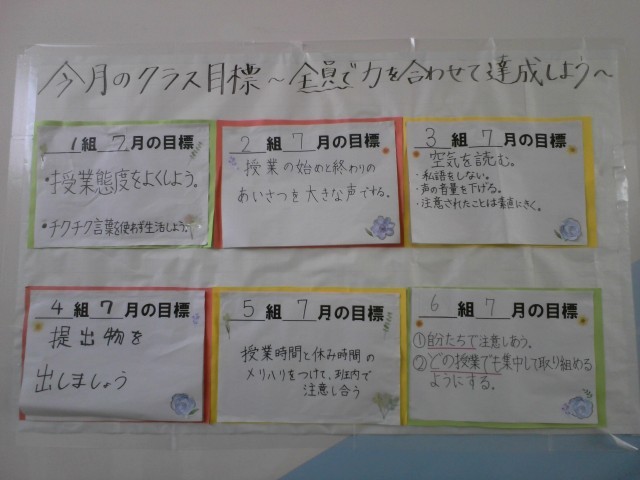 今月のクラス目標～全員で力を合わせて達成しよう～
1組 7月の目標
・授業態度をよくしよう。
・チクチク言葉を使わず生活しよう。
2組 7月の目標
・授業の始めと終わりの
あいさつを大きな声でする。
3組 7月の目標
空気を読む。
・私語をしない。
・声の音量を下げる。
・注意されたことは素直にきく。
4組 7月の目標
提出物を
出しましょう
5組 7月の目標
授業時間と休み時間の
メリハリをつけて、班内で
注意し合う
6組 7月の目標
①自分たちで注意しあう。
②どの授業でも集中して取り組める
ようにする。